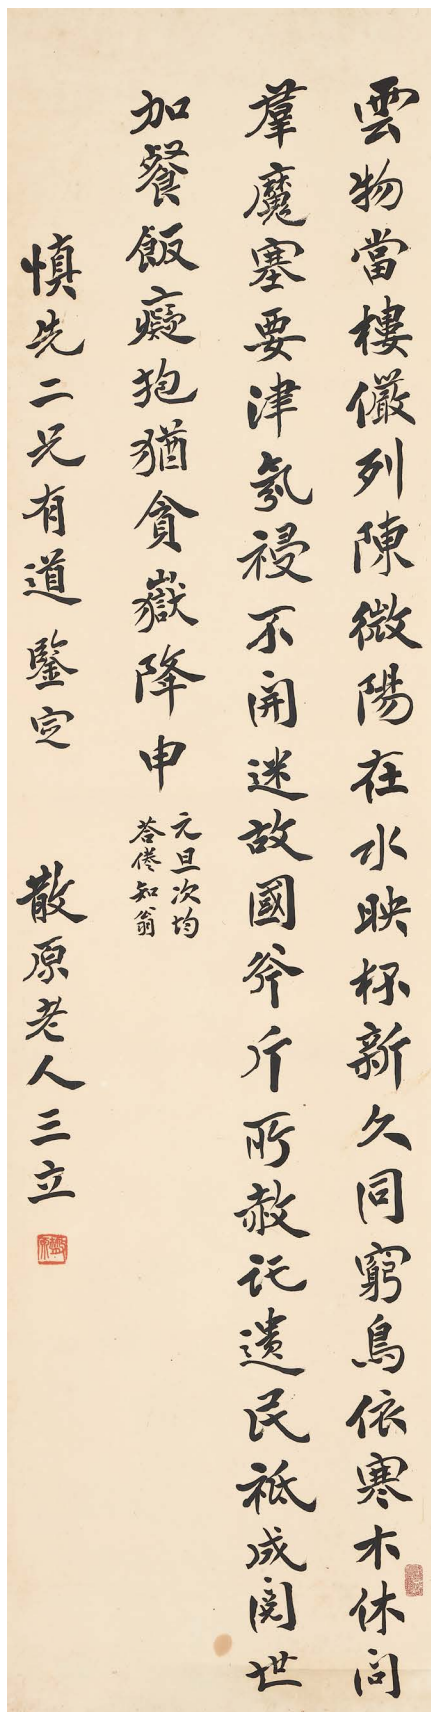 雲物當樓儼列陳微陽在水映杯新久同窮鳥依寒木休問
羣魔塞要津氛祲不開迷故國斧斤所赦託遺民祗成閱世
加餐飯癡抱猶貪嶽降申
元旦次均
荅倦知翁
慎先二兄有道鑒定
散原老人三立